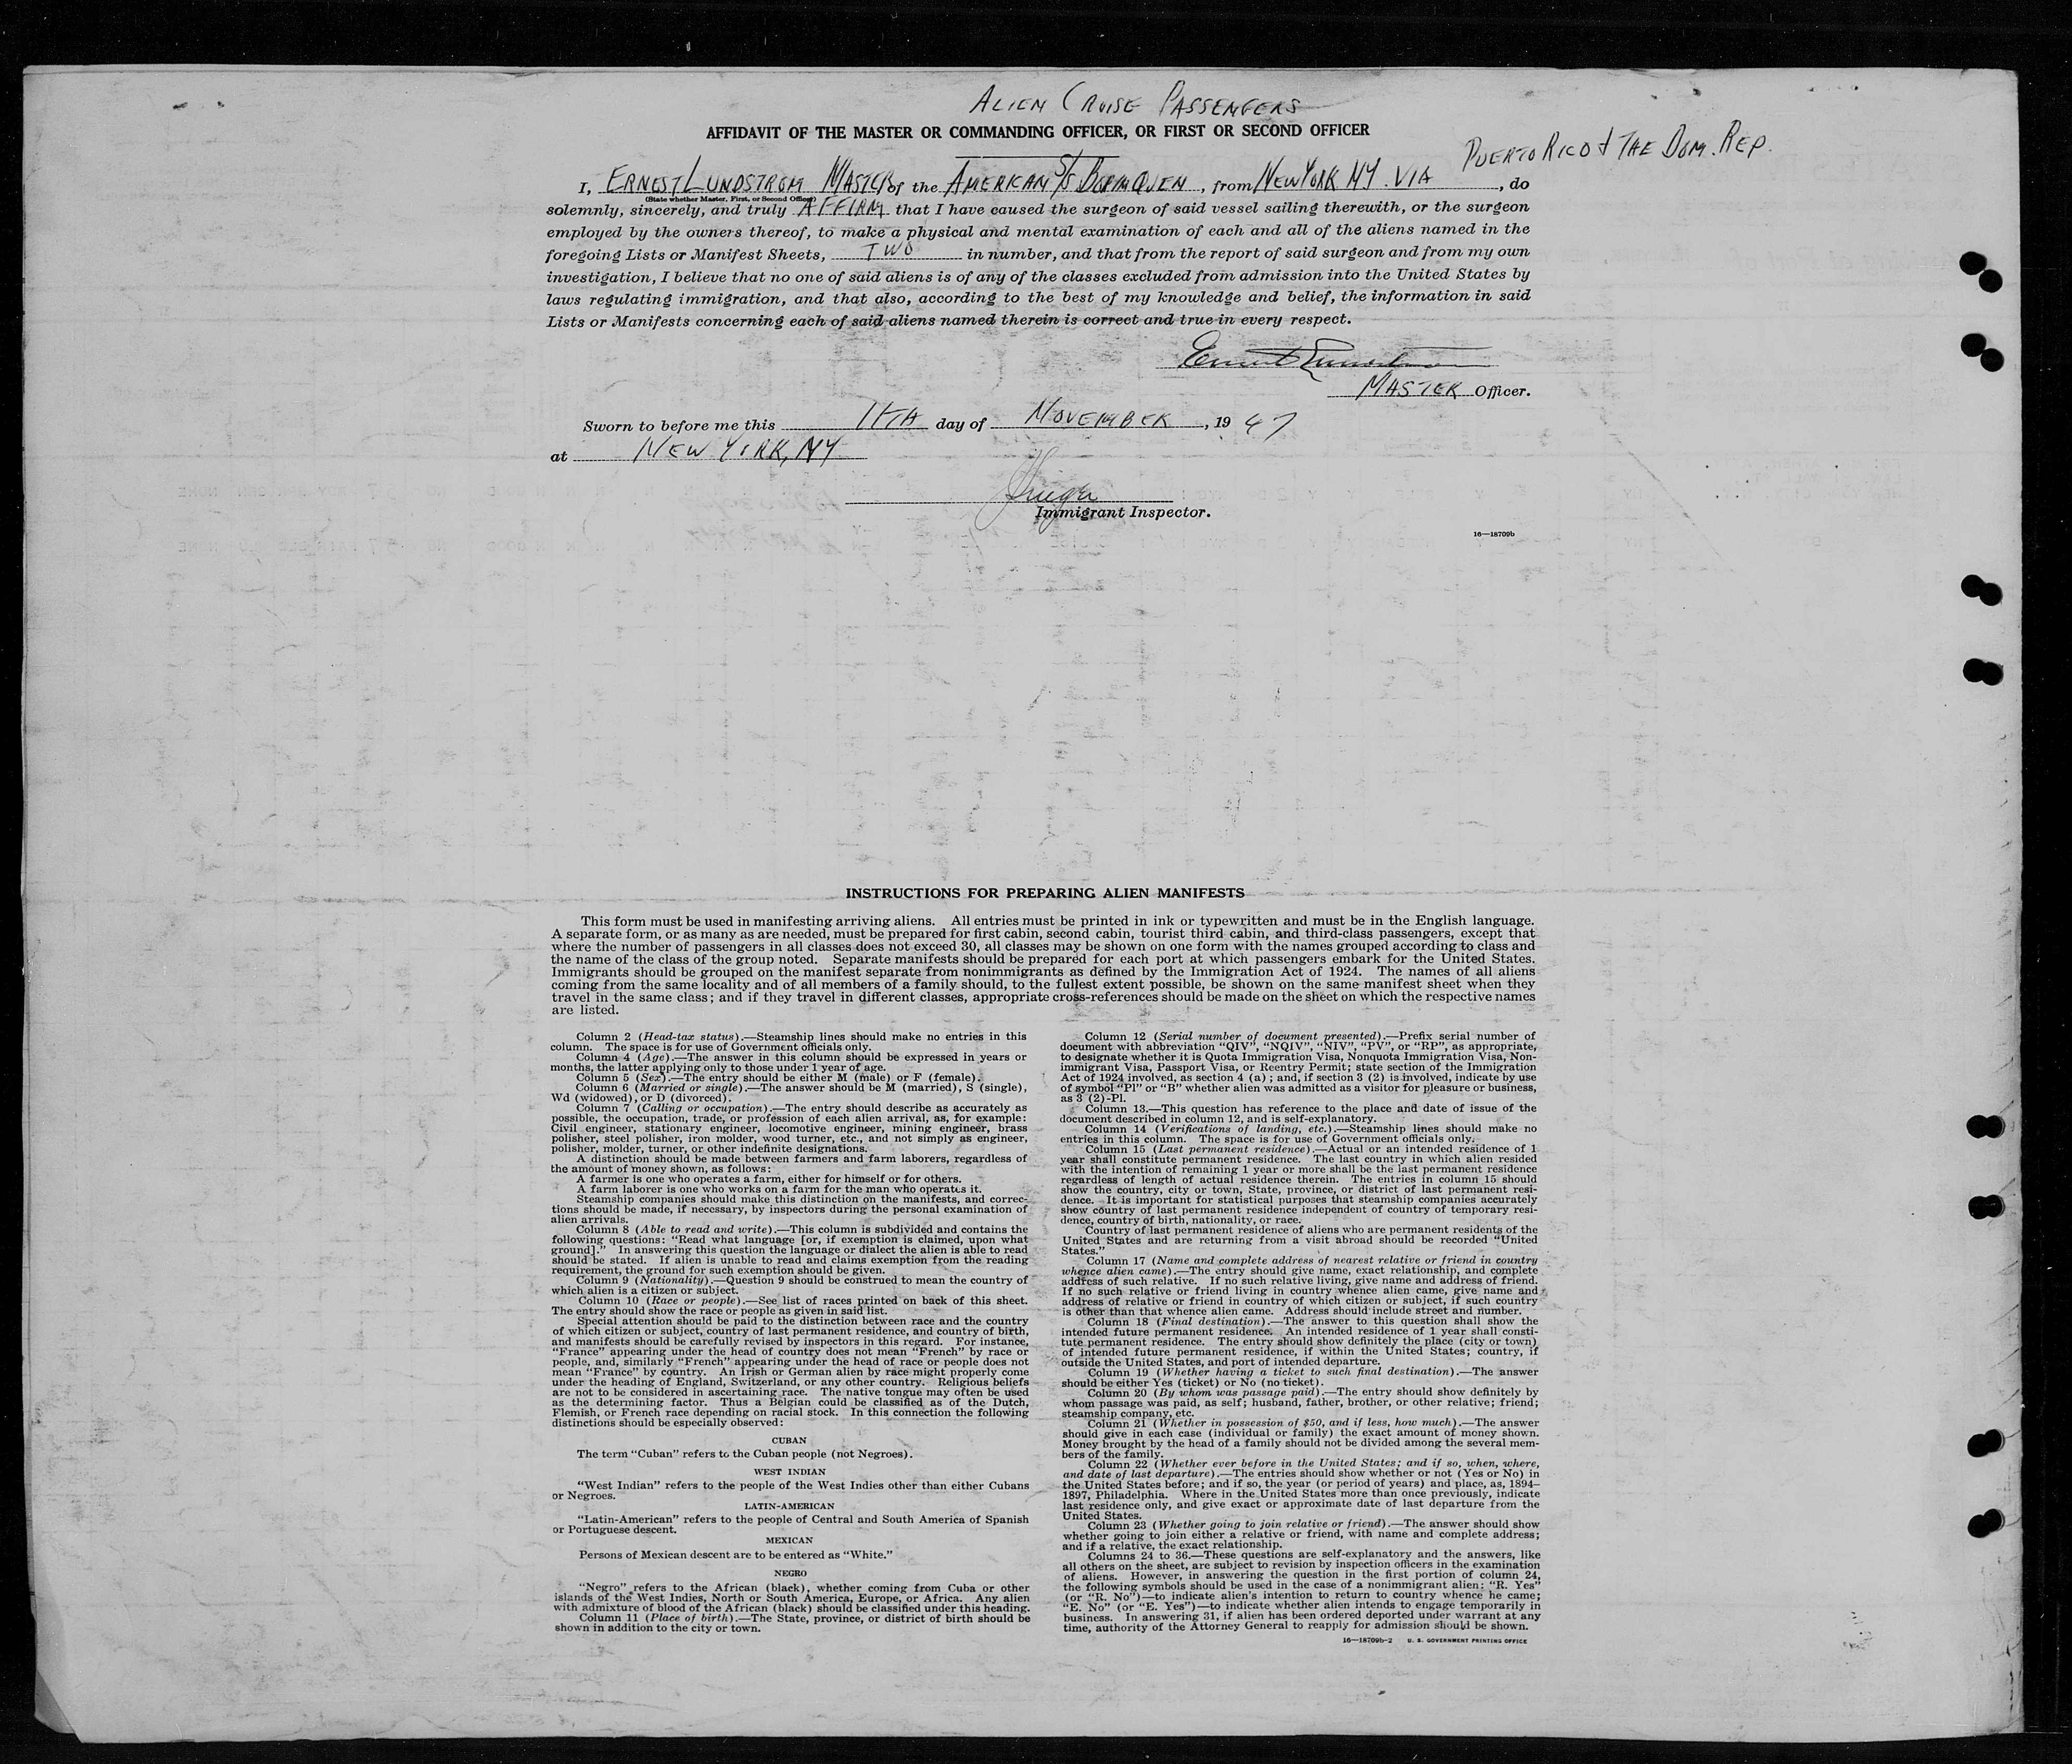 ALIEN CRUISE PASSENGERS
AFFIDAVIT OF THE MASTER OR COMMANDING OFFICER, OR FIRST OR SECOND OFFICER
PUERTO RICO & THE DOM. REP.
I, ERNEST LUNDSTROM MASTER of the AMERICAN S/S BORINQUEN, from NEW YORK NY. VIA, do
(State whether Master, First, or Second Officer)
solemnly, sincerely, and truly AFFIRM that I have caused the surgeon of said vessel sailing therewith, or the surgeon
employed by the owners thereof, to make a physical and mental examination of each and all of the aliens named in the
foregoing Lists or Manifest Sheets, TWO in number, and that from the report of said surgeon and from my own
investigation, I believe that no one of said aliens is of any of the classes excluded from admission into the United States by
laws regulating immigration, and that also, according to the best of my knowledge and belief, the information in said
Lists or Manifests concerning each of said aliens named therein is correct and true in every respect.
Ernest Lundstrom
MASTER Officer.
Sworn to before me this 11TH day of NOVEMBER, 19 47
at NEW YORK, NY
Immigrant Inspector.
16—18709b
INSTRUCTIONS FOR PREPARING ALIEN MANIFESTS
This form must be used in manifesting arriving aliens. All entries must be printed in ink or typewritten and must be in the English language.
A separate form, or as many as are needed, must be prepared for first cabin, second cabin, tourist third cabin, and third-class passengers, except that
where the number of passengers in all classes does not exceed 30, all classes may be shown on one form with the names grouped according to class and
the name of the class of the group noted. Separate manifests should be prepared for each port at which passengers embark for the United States.
Immigrants should be grouped on the manifest separate from nonimmigrants as defined by the Immigration Act of 1924. The names of all aliens
coming from the same locality and of all members of a family should, to the fullest extent possible, be shown on the same manifest sheet when they
travel in the same class; and if they travel in different classes, appropriate cross-references should be made on the sheet on which the respective names
are listed.
Column 2 (Head-tax status).—Steamship lines should make no entries in this
column. The space is for use of Government officials only.
Column 4 (Age).—The answer in this column should be expressed in years or
months, the latter applying only to those under 1 year of age.
Column 5 (Sex).—The entry should be either M (male) or F (female).
Column 6 (Married or single).—The answer should be M (married), S (single),
Wd (widowed), or D (divorced).
Column 7 (Calling or occupation).—The entry should describe as accurately as
possible, the occupation, trade, or profession of each alien arrival, as, for example:
Civil engineer, stationary engineer, locomotive engineer, mining engineer, brass
polisher, steel polisher, iron molder, wood turner, etc., and not simply as engineer,
polisher, molder, turner, or other indefinite designations.
A distinction should be made between farmers and farm laborers, regardless of
the amount of money shown, as follows:
A farmer is one who operates a farm, either for himself or for others.
A farm laborer is one who works on a farm for the man who operates it.
Steamship companies should make this distinction on the manifests, and correc-
tions should be made, if necessary, by inspectors during the personal examination of
alien arrivals.
Column 8 (Able to read and write).—This column is subdivided and contains the
following questions: "Read what language [or, if exemption is claimed, upon what
ground]." In answering this question the language or dialect the alien is able to read
should be stated. If alien is unable to read and claims exemption from the reading
requirement, the ground for such exemption should be given.
Column 9 (Nationality).—Question 9 should be construed to mean the country of
which alien is a citizen or subject.
Column 10 (Race or people).—See list of races printed on back of this sheet.
The entry should show the race or people as given in said list.
Special attention should be paid to the distinction between race and the country
of which citizen or subject, country of last permanent residence, and country of birth,
and manifests should be carefully revised by inspectors in this regard. For instance,
"France" appearing under the head of country does not mean "French" by race or
people, and, similarly "French" appearing under the head of race or people does not
mean "France" by country. An Irish or German alien by race might properly come
under the heading of England, Switzerland, or any other country. Religious beliefs
are not to be considered in ascertaining race. The native tongue may often be used
as the determining factor. Thus a Belgian could be classified as of the Dutch,
Flemish, or French race depending on racial stock. In this connection the following
distinctions should be especially observed:
CUBAN
The term "Cuban" refers to the Cuban people (not Negroes).
WEST INDIAN
"West Indian" refers to the people of the West Indies other than either Cubans
or Negroes.
LATIN-AMERICAN
"Latin-American" refers to the people of Central and South America of Spanish
or Portuguese descent.
MEXICAN
Persons of Mexican descent are to be entered as "White."
NEGRO
"Negro" refers to the African (black), whether coming from Cuba or other
islands of the West Indies, North or South America, Europe, or Africa. Any alien
with admixture of blood of the African (black) should be classified under this heading.
Column 11 (Place of birth).—The State, province, or district of birth should be
shown in addition to the city or town.
Column 12 (Serial number of document presented).—Prefix serial number of
document with abbreviation "QIV", "NQIV", "NIV", "PV", or "RP", as appropriate,
to designate whether it is Quota Immigration Visa, Nonquota Immigration Visa, Non-
immigrant Visa, Passport Visa, or Reentry Permit; state section of the Immigration
Act of 1924 involved, as section 4 (a); and, if section 3 (2) is involved, indicate by use
of symbol "Pl" or "B" whether alien was admitted as a visitor for pleasure or business,
as 3 (2)-Pl.
Column 13.—This question has reference to the place and date of issue of the
document described in column 12, and is self-explanatory.
Column 14 (Verifications of landing, etc.).—Steamship lines should make no
entries in this column. The space is for use of Government officials only.
Column 15 (Last permanent residence).—Actual or an intended residence of 1
year shall constitute permanent residence. The last country in which alien resided
with the intention of remaining 1 year or more shall be the last permanent residence
regardless of length of actual residence therein. The entries in column 15 should
show the country, city or town, State, province, or district of last permanent resi-
dence. It is important for statistical purposes that steamship companies accurately
show country of last permanent residence independent of country of temporary resi-
dence, country of birth, nationality, or race.
Country of last permanent residence of aliens who are permanent residents of the
United States and are returning from a visit abroad should be recorded "United
States."
Column 17 (Name and complete address of nearest relative or friend in country
whence alien came).—The entry should give name, exact relationship, and complete
address of such relative. If no such relative living, give name and address of friend.
If no such relative or friend living in country whence alien came, give name and
address of relative or friend in country of which citizen or subject, if such country
is other than that whence alien came. Address should include street and number.
Column 18 (Final destination).—The answer to this question shall show the
intended future permanent residence. An intended residence of 1 year shall consti-
tute permanent residence. The entry should show definitely the place (city or town)
of intended future permanent residence, if within the United States; country, if
outside the United States, and port of intended departure.
Column 19 (Whether having a ticket to such final destination).—The answer
should be either Yes (ticket) or No (no ticket).
Column 20 (By whom was passage paid).—The entry should show definitely by
whom passage was paid, as self; husband, father, brother, or other relative; friend;
steamship company, etc.
Column 21 (Whether in possession of $50, and if less, how much).—The answer
should give in each case (individual or family) the exact amount of money shown.
Money brought by the head of a family should not be divided among the several mem-
bers of the family.
Column 22 (Whether ever before in the United States; and if so, when, where,
and date of last departure).—The entries should show whether or not (Yes or No) in
the United States before; and if so, the year (or period of years) and place, as, 1894–
1897, Philadelphia. Where in the United States more than once previously, indicate
last residence only, and give exact or approximate date of last departure from the
United States.
Column 23 (Whether going to join relative or friend).—The answer should show
whether going to join either a relative or friend, with name and complete address;
and if a relative, the exact relationship.
Columns 24 to 36.—These questions are self-explanatory and the answers, like
all others on the sheet, are subject to revision by inspection officers in the examination
of aliens. However, in answering the question in the first portion of column 24,
the following symbols should be used in the case of a nonimmigrant alien: "R. Yes"
(or "R. No")—to indicate alien's intention to return to country whence he came;
"E. No" (or "E. Yes")—to indicate whether alien intends to engage temporarily in
business. In answering 31, if alien has been ordered deported under warrant at any
time, authority of the Attorney General to reapply for admission should be shown.
16—18709b-2 U. S. GOVERNMENT PRINTING OFFICE